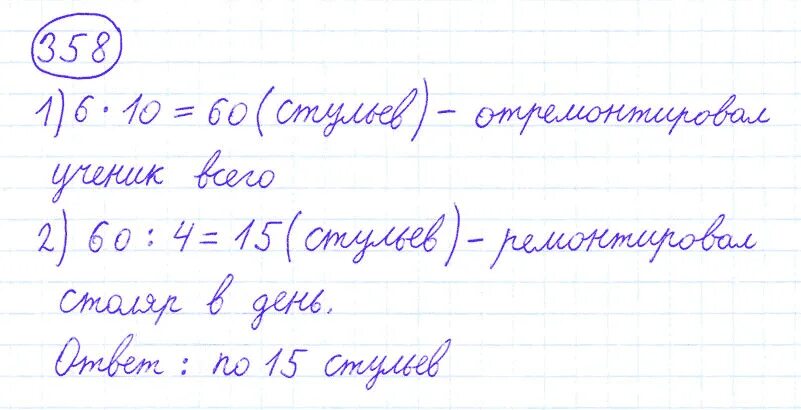 358
1) 6 · 10 = 60 (стульев) – отремонтировал
ученик всего
2) 60 : 4 = 15 (стульев) – ремонтировал
столяр в день.
Ответ : по 15 стульев